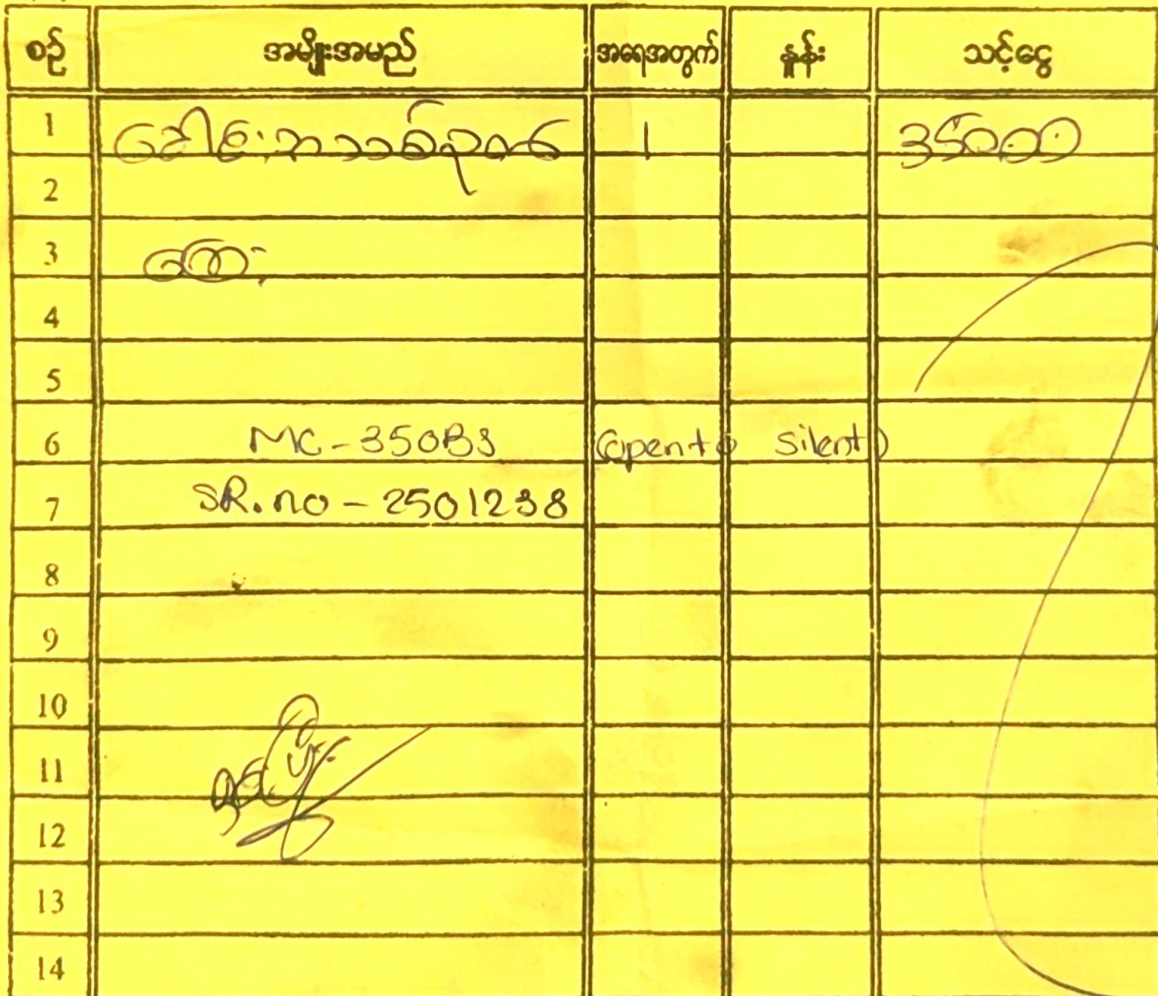 စဉ် အမျိုးအမည် အရေအတွက် နှုန်း သင့်ငွေ
1 ခေါင်းဘသစ်လုတ် 1 35000
2
3 ကြွေး
4
5
6 MC-350BS (open to silent)
7 SR.no - 2501238
8
9
10
11 ရှင်းပြီး
12
13
14